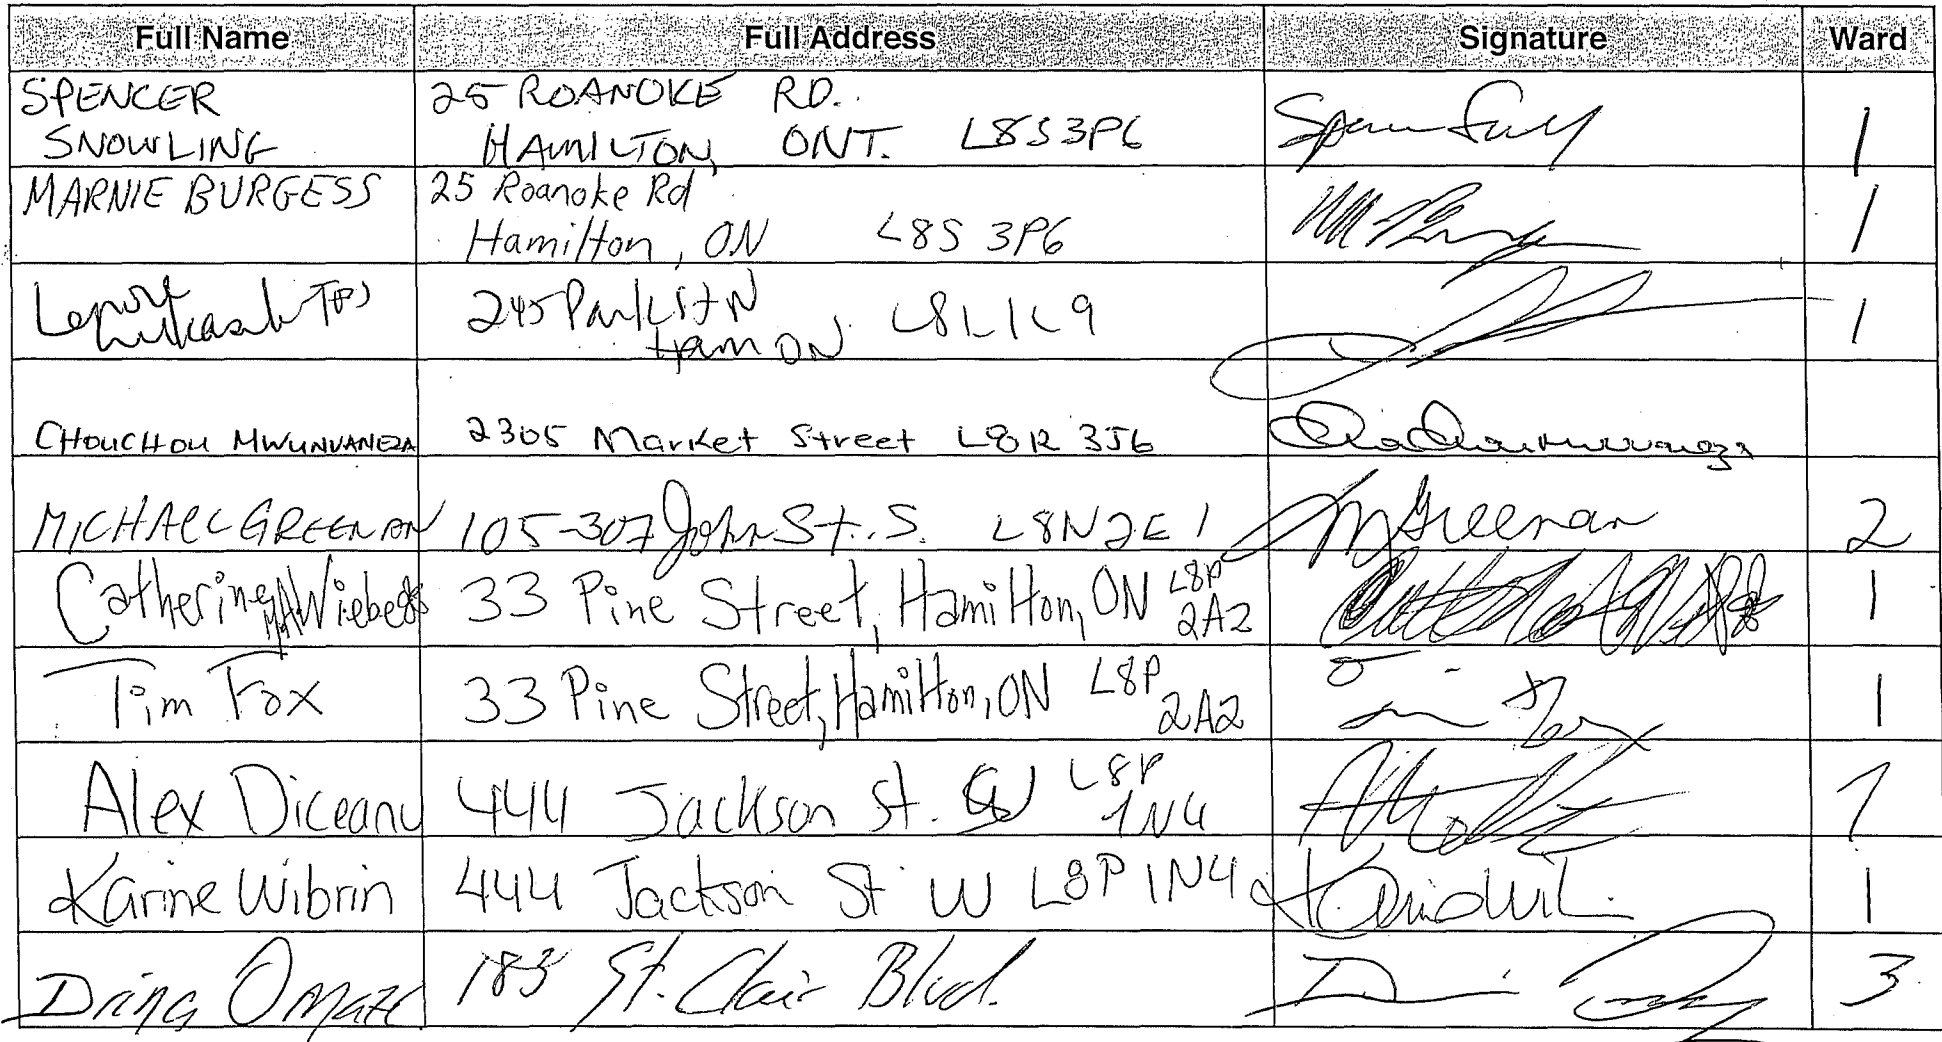 Full Name Full Address Signature Ward
SPENCER 25 ROANOKE RD.
SNOWLING HAMILTON, ONT. L8S3P6 1
MARNIE BURGESS 25 Roanoke Rd
Hamilton, ON L8S 3P6 1
245 Park St N L8L1L9 1
Ham ON
CHOUCHOU MWUNVANEZA 2305 Market Street L8R 3J6
MICHAEL GREENAN 105-307 John St. S. L8N2E1 M Greenan 2
Catherine Wiebe 33 Pine Street, Hamilton, ON L8P 1
2A2
Tim Fox 33 Pine Street, Hamilton, ON L8P Tim Fox 1
2A2
Alex Diceanu 444 Jackson St. W L8P 1
1N4
Karine Wibrin 444 Jackson St W L8P 1N4 1
183 St. Clair Blvd. 3